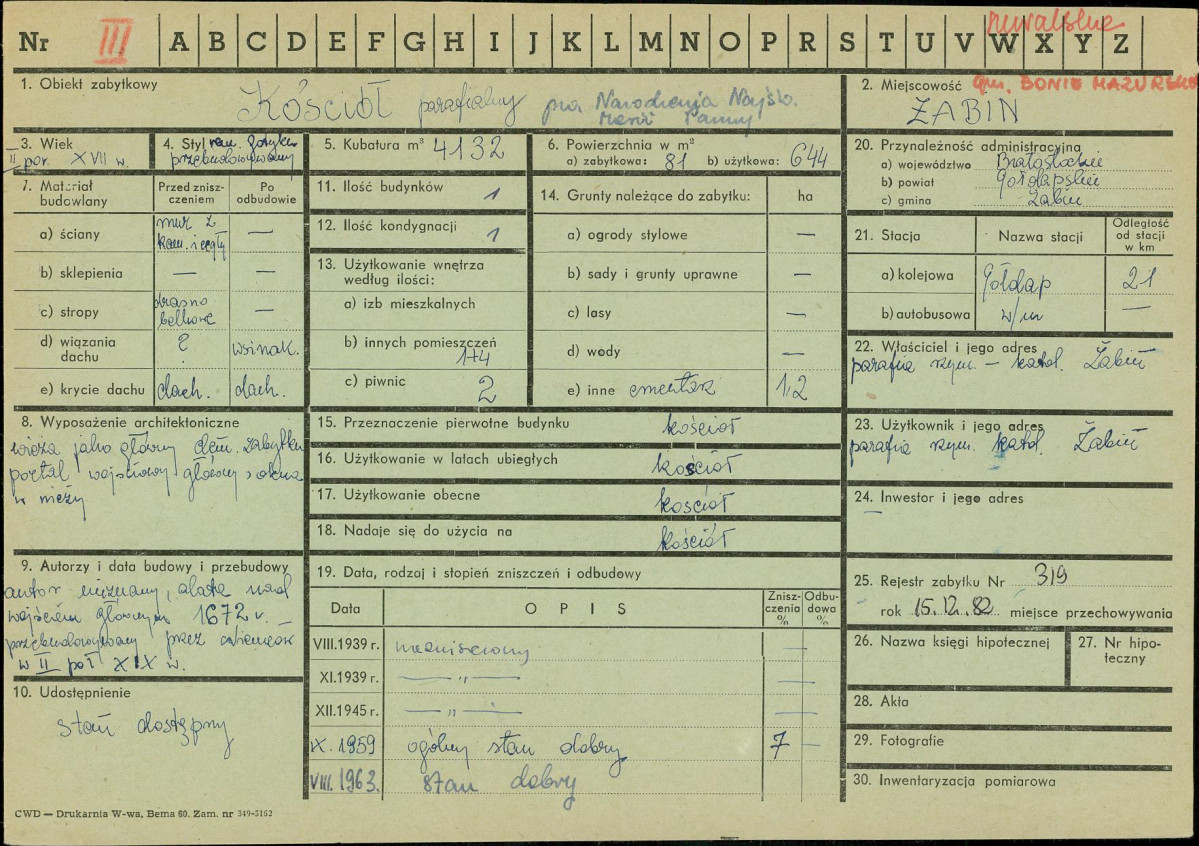 Nr III A B C D E F G H I J K L M N O P R S T U V W X Y Z
1. Obiekt zabytkowy
Kościół parafialny pw Narodzenia Najśw.
Marii Panny
2. Miejscowość gm. BONIE MAZURSKIE
ŻABIN
3. Wiek
II poł. XVII w.
4. Styl ren. gotyku
przebudowywany
5. Kubatura m³ 4132
6. Powierzchnia w m²
a) zabytkowa: 81 b) użytkowa: 644
7. Materiał budowlany
Przed zniszczeniem
Po odbudowie
a) ściany mur z kam. i cegły —
b) sklepienia — —
c) stropy drewno belkowe —
d) wiązania dachu ? wsinak.
e) krycie dachu dach. dach.
8. Wyposażenie architektoniczne
wieża jako główny elem. zabytku
portal wejściowy główny, okna
w wieży
9. Autorzy i data budowy i przebudowy
autor nieznany, data nad
wejściem głównym 1672 r.
przebudowywany przez
w II poł XIX w.
10. Udostępnienie
stan dostępny
11. Ilość budynków 1
12. Ilość kondygnacji 1
13. Użytkowanie wnętrza
według ilości:
a) izb mieszkalnych
b) innych pomieszczeń
1+4
c) piwnic 2
14. Grunty należące do zabytku: ha
a) ogrody stylowe —
b) sady i grunty uprawne —
c) lasy —
d) wody —
e) inne cmentarz 1,2
15. Przeznaczenie pierwotne budynku kościół
16. Użytkowanie w latach ubiegłych kościół
17. Użytkowanie obecne kościół
18. Nadaje się do użycia na kościół
19. Data, rodzaj i stopień zniszczeń i odbudowy
Data OPIS Zniszczenia % Odbudowa %
VIII.1939 r. niezniszczony —
XI.1939 r. — " — —
XII.1945 r. — " — —
IX. 1959 ogólny stan dobry 7 —
VIII. 1963. stan dobry
20. Przynależność administracyjna
a) województwo Białostockie
b) powiat Gołdapskie
c) gmina Żabin
21. Stacja Nazwa stacji Odległość od stacji w km
a) kolejowa Gołdap 21
b) autobusowa w/m —
22. Właściciel i jego adres
parafia rzym. – katol. Żabin
23. Użytkownik i jego adres
parafia rzym. katol. Żabin
24. Inwestor i jego adres
—
25. Rejestr zabytku Nr 319
rok 15.12.82 miejsce przechowywania
26. Nazwa księgi hipotecznej
27. Nr hipoteczny
28. Akta
29. Fotografie
30. Inwentaryzacja pomiarowa
CWD — Drukarnia W-wa, Bema 60. Zam. nr 349-5162